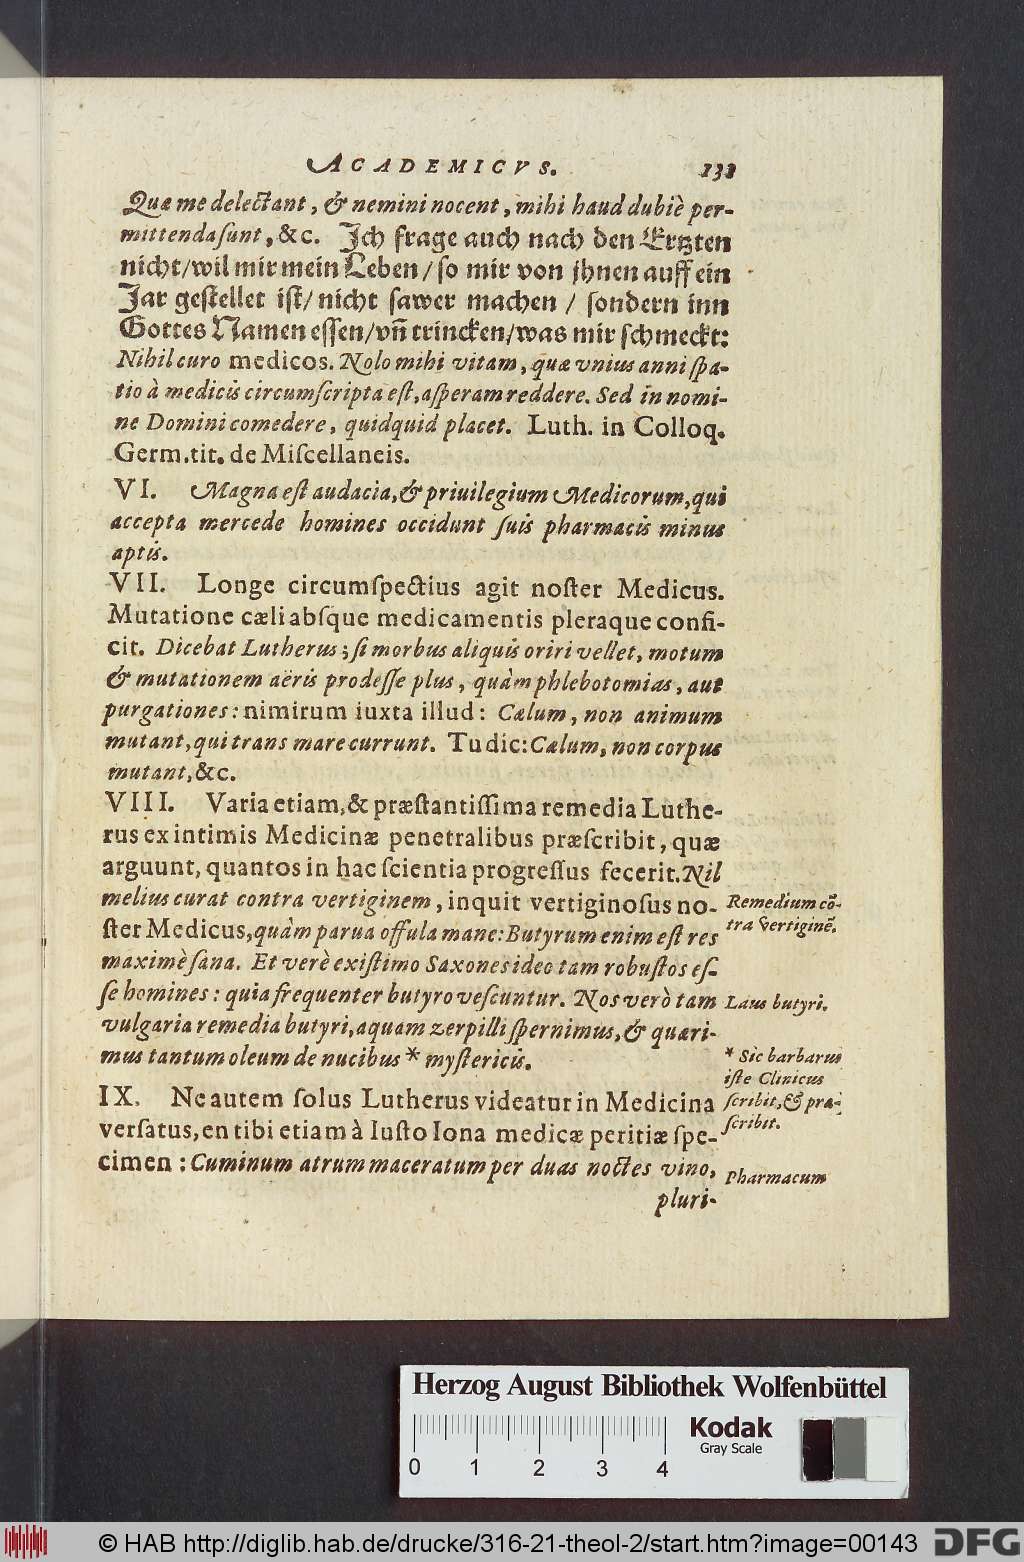 ACADEMICVS. 131
Quæ me delectant, & nemini nocent, mihi haud dubiè per-
mittenda ſunt, &c. Jch frage auch nach den Ertzten
nicht/wil mir mein Leben/ ſo mir von jhnen auff ein
Jar geſtellet iſt/ nicht ſawer machen / ſondern inn
Gottes Namen eſſen/vñ trincken/was mir ſchmeckt:
Nihil curo medicos. Nolo mihi vitam, quæ vnius anni ſpa-
tio à medicis circumſcripta eſt, aſperam reddere. Sed in nomi-
ne Domini comedere, quidquid placet. Luth. in Colloq.
Germ. tit. de Miſcellaneis.
VI. Magna eſt audacia, & priuilegium Medicorum, qui
accepta mercede homines occidunt ſuis pharmacis minus
aptis.
VII. Longe circumſpectius agit noſter Medicus.
Mutatione cæli abſque medicamentis pleraque confi-
cit. Dicebat Lutherus; ſi morbus aliquis oriri vellet, motum
& mutationem aëris prodeſſe plus, quàm phlebotomias, aut
purgationes: nimirum iuxta illud: Cælum, non animum
mutant, qui trans mare currunt. Tu dic: Cælum, non corpus
mutant, &c.
VIII. Varia etiam, & præſtantiſſima remedia Luthe-
rus ex intimis Medicinæ penetralibus præſcribit, quæ
arguunt, quantos in hac ſcientia progreſſus fecerit. Nil
melius curat contra vertiginem, inquit vertiginoſus no-
ſter Medicus, quàm parua offula mane: Butyrum enim eſt res
maximè ſana. Et verè exiſtimo Saxones ideo tam robuſtos eſ-
ſe homines: quia frequenter butyro veſcuntur. Nos verò tam
vulgaria remedia butyri, aquam zerpilli ſpernimus, & quæri-
mus tantum oleum de nucibus * myſtericis.
IX. Ne autem ſolus Lutherus videatur in Medicina
verſatus, en tibi etiam à Iuſto Iona medicæ peritiæ ſpe-
cimen: Cuminum atrum maceratum per duas noctes vino,
pluri-
Remedium cō-
tra vertiginē.
Laus butyri.
* Sic barbarus
iſte Clinicus
ſcribit, & præ-
ſcribit.
Pharmacum
Herzog August Bibliothek Wolfenbüttel
Kodak
Gray Scale
0 1 2 3 4
© HAB http://diglib.hab.de/drucke/316-21-theol-2/start.htm?image=00143
DFG